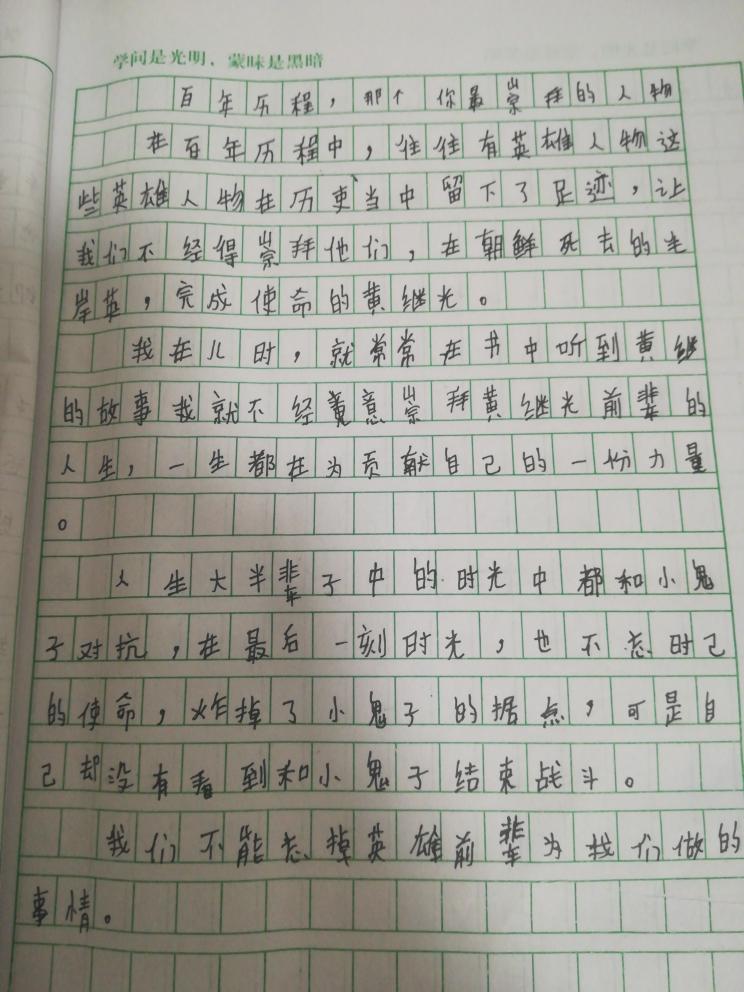 学问是光明，蒙昧是黑暗
百年历程，那个你最崇拜的人物
在百年历程中，往往有英雄人物这
些英雄人物在历史当中留下了足迹，让
我们不经得崇拜他们，在朝鲜死去的毛
岸英，完成使命的黄继光。
我在儿时，就常常在书中听到黄继
的故事我就不经意崇拜黄继光前辈的
人生，一生都在为贡献自己的一份力量
。
人生大半辈子中的时光中都和小鬼
子对抗，在最后一刻时光，也不忘时己
的使命，炸掉了小鬼子的据点，可是自
己却没有看到和小鬼子结束战斗。
我们不能忘掉英雄前辈为我们做的
事情。